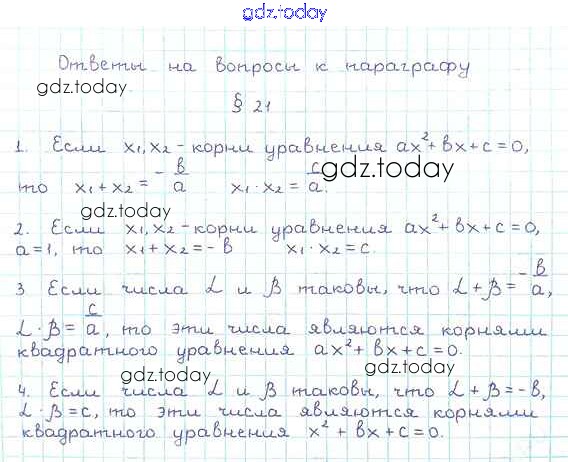 gdz.today
Ответы на вопросы к параграфу
gdz.today
§ 21
1. Если x₁, x₂ - корни уравнения ax² + bx + c = 0,
gdz.today
то x₁ + x₂ = -b/a x₁ · x₂ = c/a.
gdz.today
2. Если x₁, x₂ - корни уравнения ax² + bx + c = 0,
a = 1, то x₁ + x₂ = - b x₁ · x₂ = c.
3 Если числа α и β таковы, что α + β = -b/a,
α · β = c/a, то эти числа являются корнями
квадратного уравнения ax² + bx + c = 0.
gdz.today gdz.today
4. Если числа α и β таковы, что α + β = - b,
α · β = c, то эти числа являются корнями
квадратного уравнения x² + bx + c = 0.